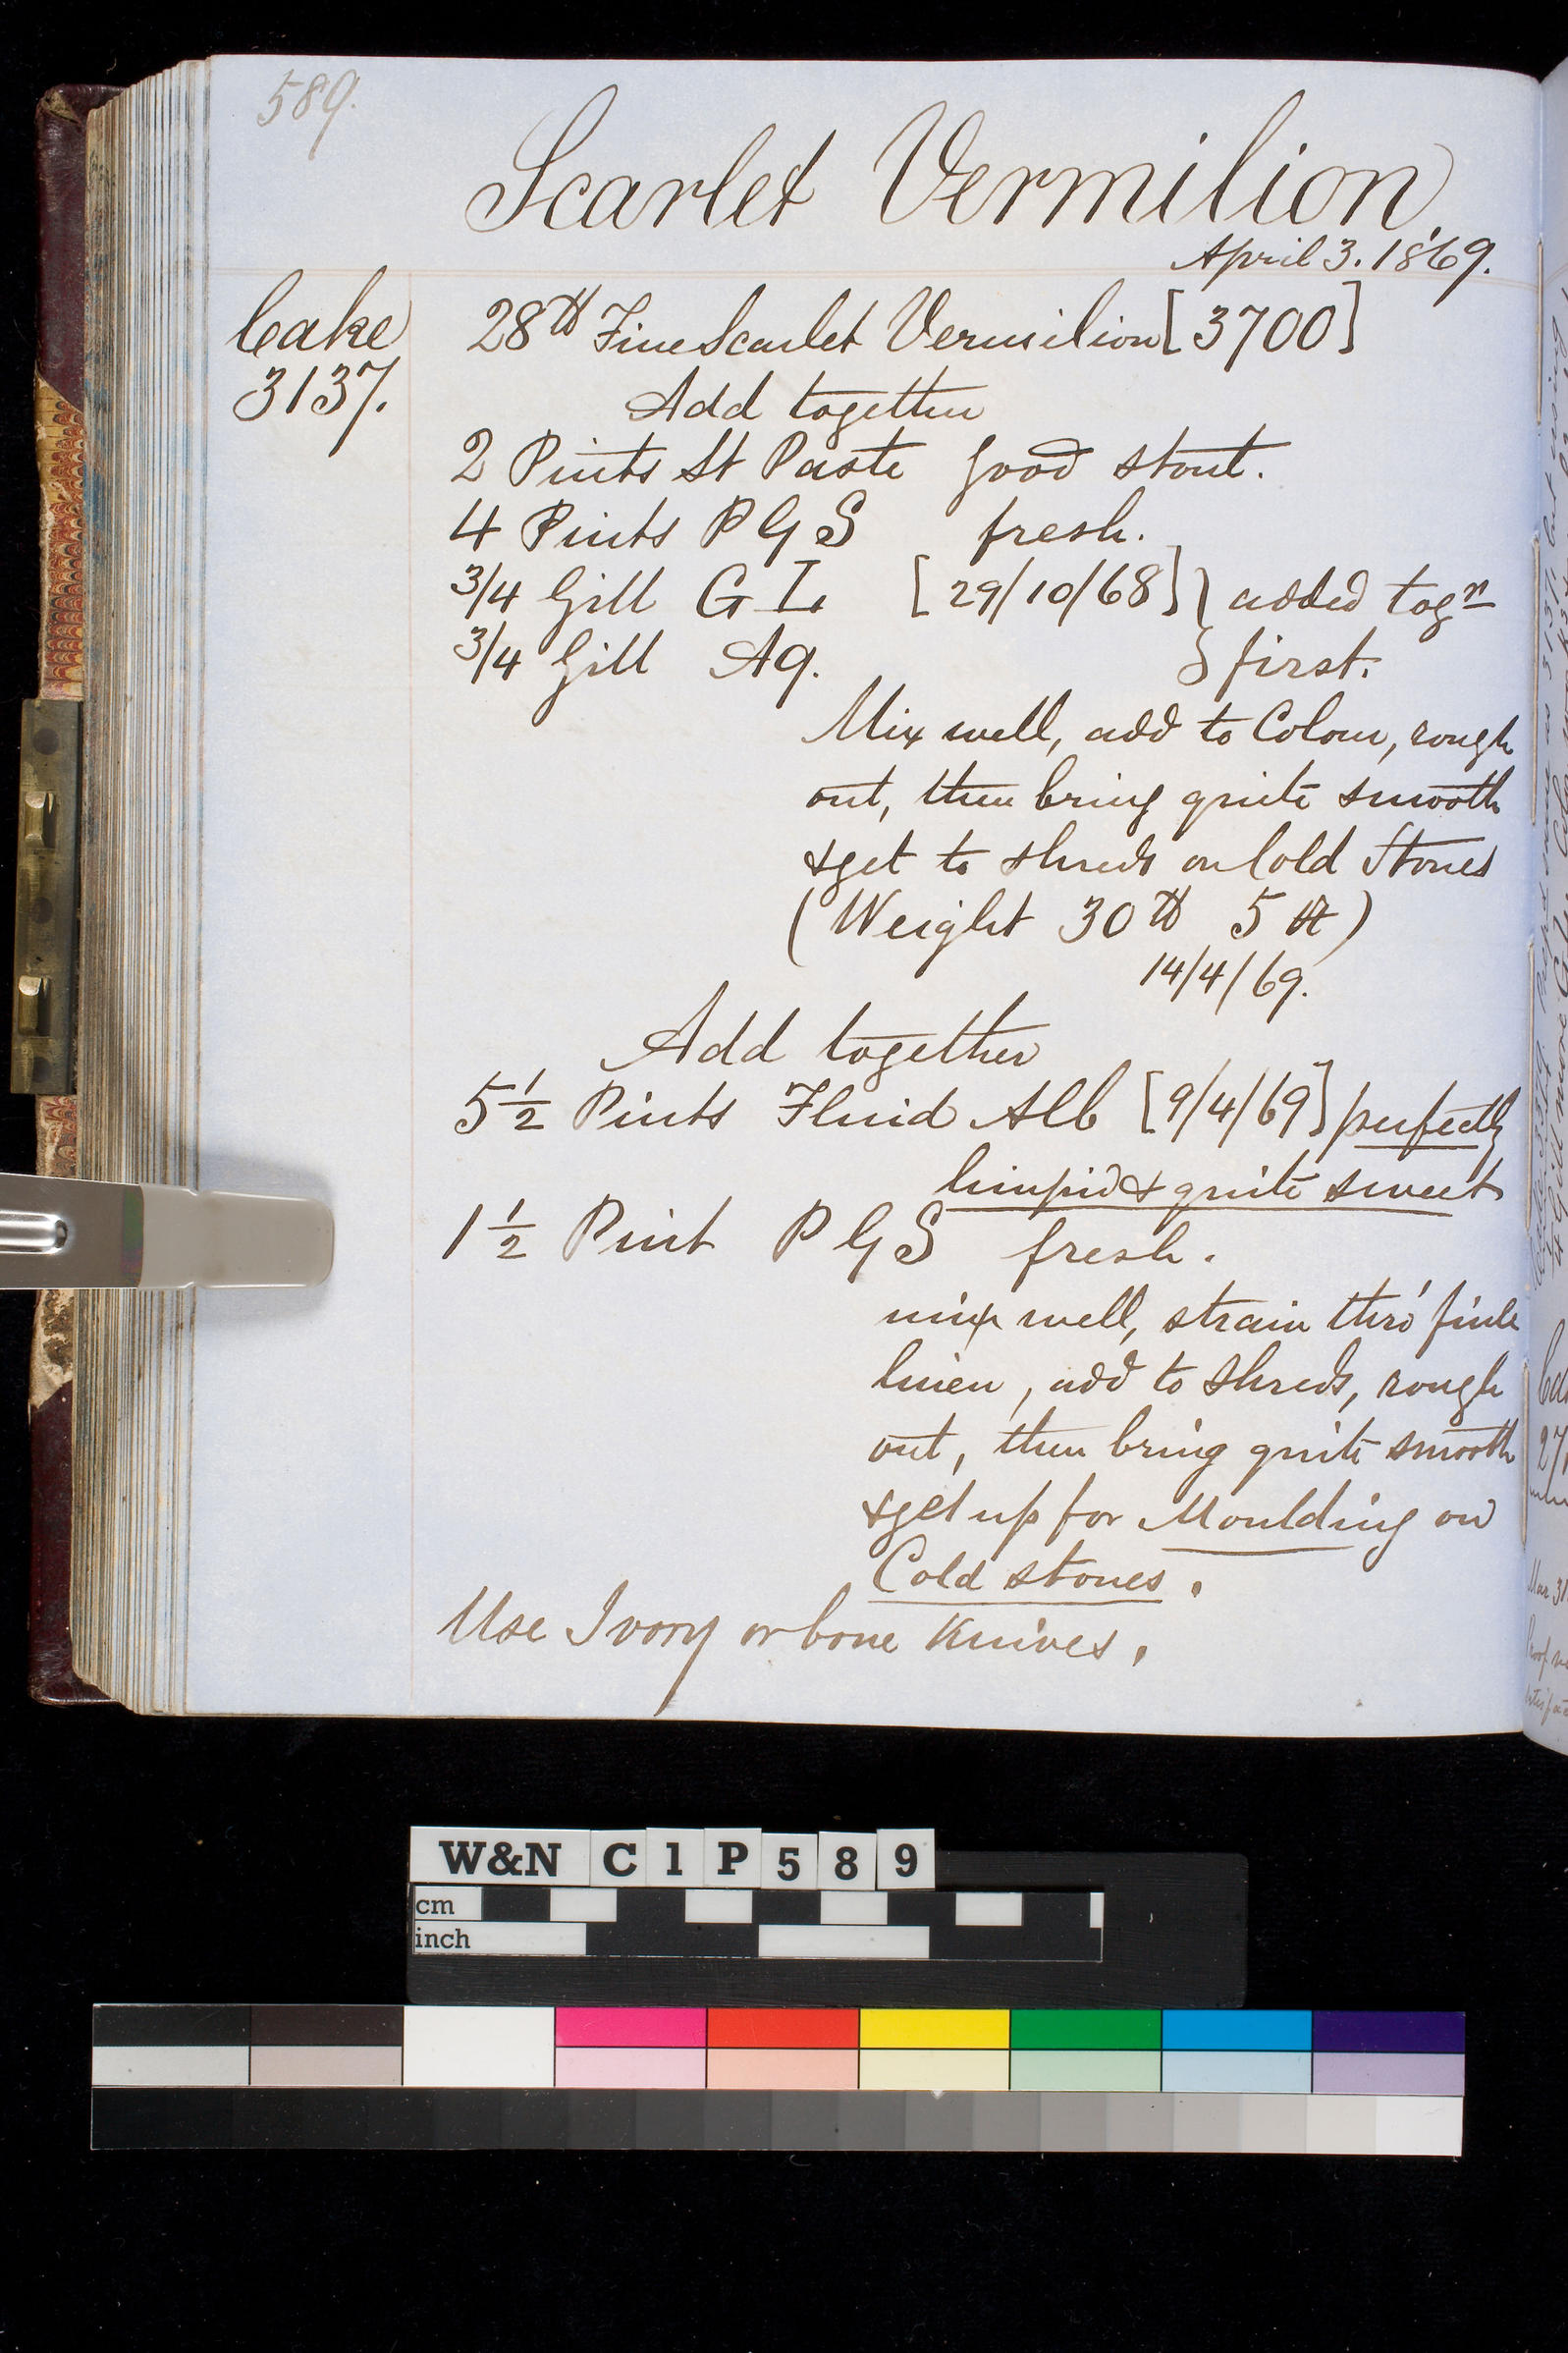 589.
Scarlet Vermilion
April 3. 1869.
Cake
3137.
28 lb Fine Scarlet Vermilion [3700]
Add together
2 Pints St Paste good stout.
4 Pints P G S fresh.
3/4 Gill G I. [29/10/68] } added togr
3/4 Gill Aq. } first.
Mix well, add to Colour, rough
out, then bring quite smooth
& get to shreds on Cold Stones
(Weight 30 lb 5
14/4/69.
Add together
5 1/2 Pints Fluid Alb [9/4/69] perfectly
limpid & quite sweet
1 1/2 Pint P G S fresh.
mix well, strain thro' fine
linen, add to shreds, rough
out, then bring quite smooth
& get up for Moulding on
Cold stones.
Use Ivory or bone Knives.
W&N C1P589
cm
inch